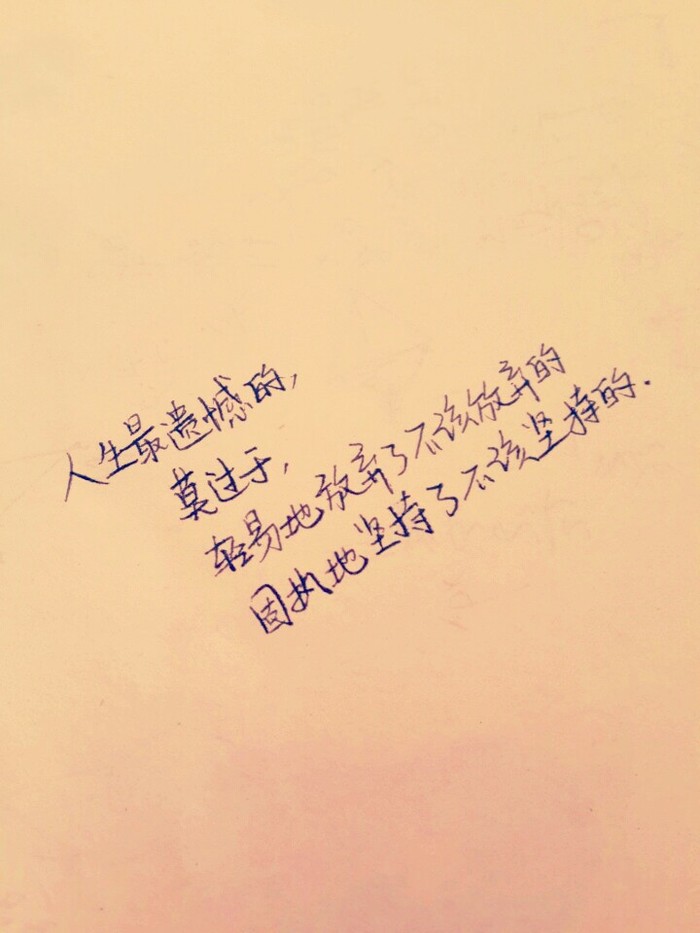 人生最遗憾的,
莫过于,
轻易地放弃了不该放弃的
固执地坚持了不该坚持的.